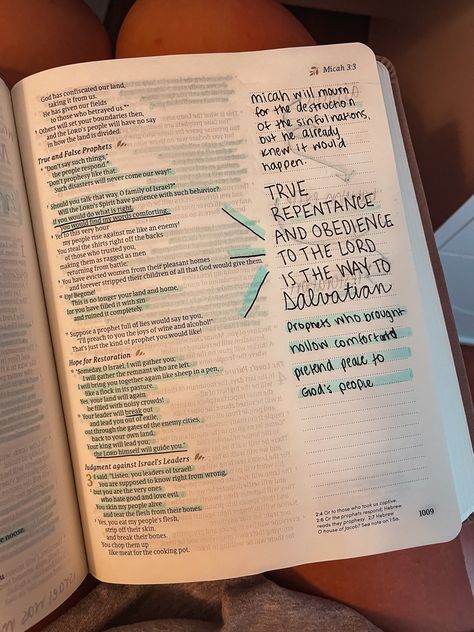 Micah 3:3
God has confiscated our land,
taking it from us.
He has given our fields
to those who betrayed us.*"
5 Others will set your boundaries then,
and the LORD's people will have no say
in how the land is divided.
True and False Prophets
6 "Don't say such things,"
the people respond.*
"Don't prophesy like that.
Such disasters will never come our way!"
7 Should you talk that way, O family of Israel?*
Will the LORD's Spirit have patience with such behavior?
If you would do what is right,
you would find my words comforting.
8 Yet to this very hour
my people rise against me like an enemy!
You steal the shirts right off the backs
of those who trusted you,
making them as ragged as men
returning from battle.
9 You have evicted women from their pleasant homes
and forever stripped their children of all that God would give them.
10 Up! Begone!
This is no longer your land and home,
for you have filled it with sin
and ruined it completely.
11 Suppose a prophet full of lies would say to you,
"I'll preach to you the joys of wine and alcohol!"
That's just the kind of prophet you would like!
Hope for Restoration
12 "Someday, O Israel, I will gather you;
I will gather the remnant who are left.
I will bring you together again like sheep in a pen,
like a flock in its pasture.
Yes, your land will again
be filled with noisy crowds!
13 Your leader will break out
and lead you out of exile,
out through the gates of the enemy cities,
back to your own land.
Your king will lead you;
the LORD himself will guide you."
Judgment against Israel's Leaders
3 I said, "Listen, you leaders of Israel!
You are supposed to know right from wrong,
2 but you are the very ones
who hate good and love evil.
You skin my people alive
and tear the flesh from their bones.
3 Yes, you eat my people's flesh,
strip off their skin,
and break their bones.
You chop them up
like meat for the cooking pot.
micah will mourn
for the destruction
of the sinful nations,
but he already
knew it would
happen.
TRUE
REPENTANCE
AND OBEDIENCE
TO THE LORD
IS THE WAY TO
Salvation
Prophets who brought
hollow comfort and
pretend peace to
God's people
2:4 Or to those who took us captive.
2:6 Or the prophets respond; Hebrew
reads they prophesy. 2:7 Hebrew
O house of Jacob? See note on 1:5a.
1009